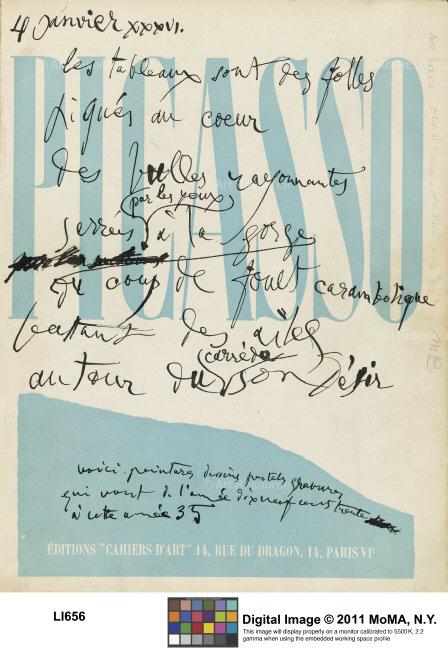 4 janvier XXXVI.
PICASSO
les tableaux sont des folles
piqués au coeur
des bulles rayonnantes
(par les yeux)
serrés à la gorge
du coup de fouet carambolique
battant des ailes
(carré de)
autour du son désir
voici peintures dessins pastels gravures
qui vont de l'année dixneufcenttrente
à cette année 35
ÉDITIONS "CAHIERS D'ART" 14, RUE DU DRAGON, 14, PARIS VIᵉ
LI656
Digital Image © 2011 MoMA, N.Y.
This image will display properly on a monitor calibrated to 5500K, 2.2
gamma when using the embedded working space profile